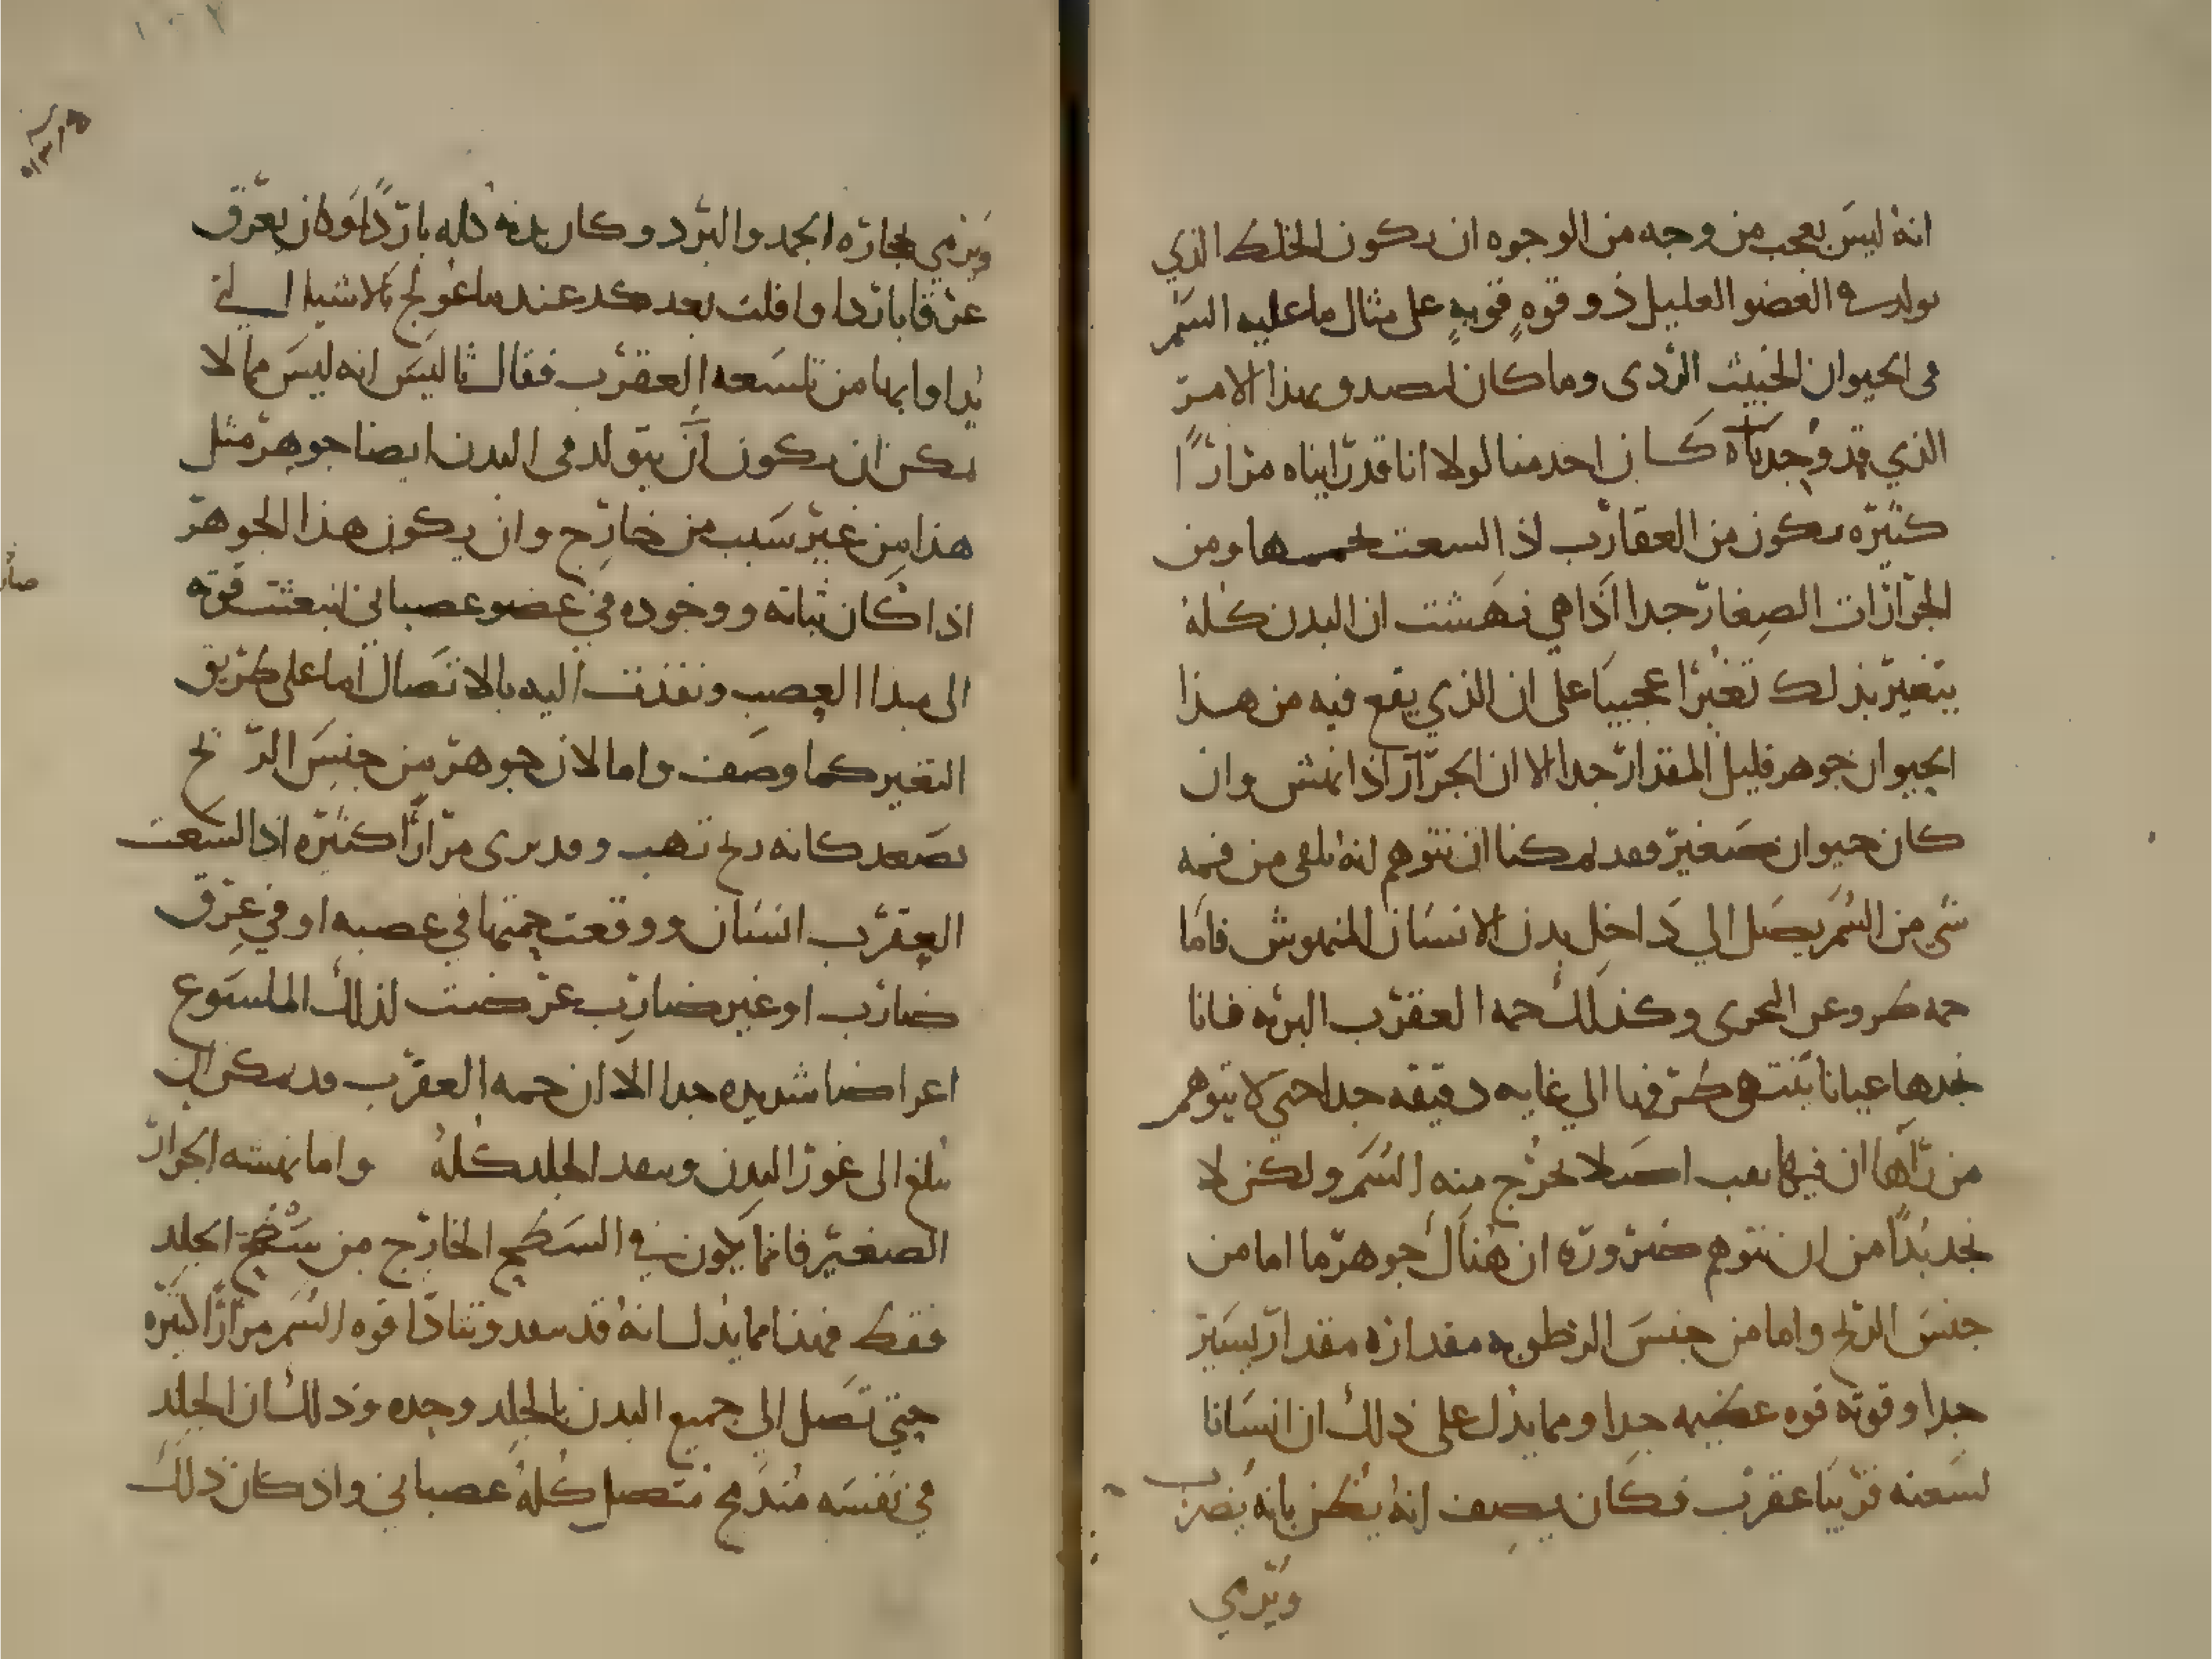 انه ليس بعجب من وجه من الوجوه ان يكون الخلط الذي
تولد في العضو العليل ذو قوةٍ قويةٍ على مثال ما عليه السم
في الحيوان الخبيث الردى وما كان ليصدق بهذا الامر
الذي قد وجدناه كان احد منا لولا انا قد راينا مراراً
كثيره يكون من العقارب اذا لسعت بحمتها ومن
الجرارات الصغار جدا اذا هي نهشت ان البدن كله
يتغير بذلك تغيرا عجيبا على ان الذي يقع فيه من هذا
الحيوان جوهر قليل المقدار جدا الا ان الجرار اذا نهش وان
كان حيوان صغير فقد يمكنا ان نتوهم انه يلقى من فمه
شي من السم يصل الي داخل بدن الانسان المنهوش فاما
حمه طروعن البحرى وكذلك حمه العقرب البريه فانا
نجدها عيانا ينتهى طرفها الي غايه دقيقه جدا حتي لا يتوهم
من راها ان فيها ثقب اصلا يخرج منه السم ولكن لا
نجد بُدًّا من ان نتوهم ضروره ان هناك جوهر ما اما من
جنس الريح واما من جنس الرطوبه مقداره مقدار يسير
جدا وقوته قوه عظيمه جدا ومما يدل على ذلك ان انسانا
لسعته قريبا عقرب فكان يصف انه يظن بانه يضرب
ويرمي
١٠٧
ويرمي بحجاره الجمد والبرد وكان بدنه كله باردًا وكان يعرق
عرقا باردا وافلت بعد كد عند ما عولج بالاشيا التي
يداوا بها من تلسعه العقرب فقال ثاليس انه ليس مما لا
يمكن ان يكون ان يتولد في البدن ايضا جوهر مثل
هذا من غير سبب من خارج وان يكون هذا الجوهر
اذا كان ثباته ووجوده في عضو عصباني انبعثت قوته
الى مبدا العصب ونفذت اليه بالاتصال اما على طريق
التغير كما وصف واما لان جوهر من جنس الريح
يصعد كانه ريح تهب وقد يرى مراراً كثيره اذا لسعت
العقرب انسان ووقعت حمتها في عصبه او في عرق
ضارب او غير ضارب عرضت لذلك الملسوع
اعراضا شديده جدا الا ان حمه العقرب قد يمكن ان
تبلغ الى غور البدن وينفذ الجلد كله واما نهشه الجرار
الصغير فانما يكون في السطح الخارج من سطح الجلد
فقط فهذا مما يدل انه قد ينفذ وتتادا قوه السم مراراً كثيره
حتي تصل الي جميع البدن بالجلد وحده وذلك ان الجلد
في نفسه مندمج متصل كله عصباني واذ كان ذلك